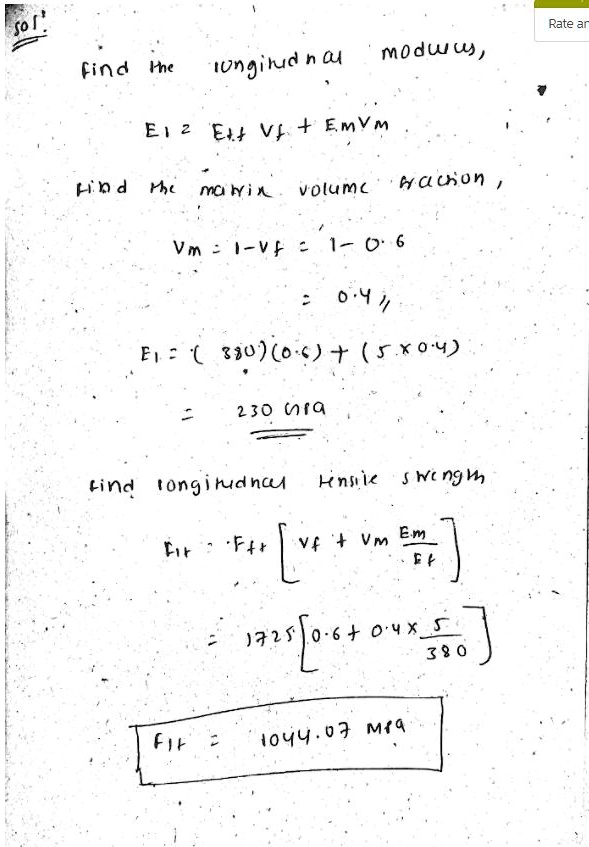 Sol:
Rate an
find the longitudnal modulus,
E1 = Eff Vf + EmVm
Find the matrix volume fraction,
Vm = 1-Vf = 1-0.6
= 0.4
E1 = (380)(0.6) + (5x0.4)
= 230 GPa
find longitudnal tensile strength
F1t = Fft [Vf + Vm Em/Ef]
= 1725 [0.6 + 0.4 x 5/380]
F1t = 1044.07 MPa